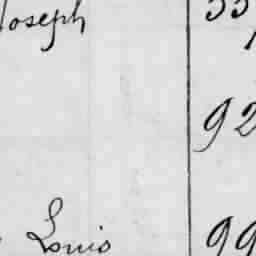 Joseph
92
Louis 99